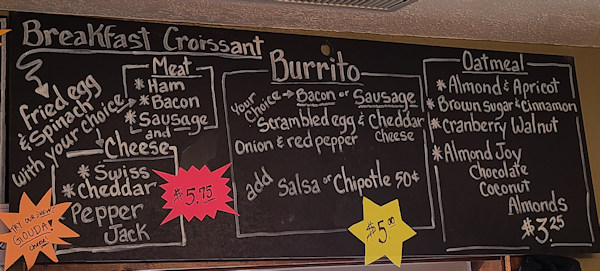 Breakfast Croissant
Fried egg
& Spinach
with your choice
Meat
* Ham
* Bacon
* Sausage
and
Cheese
* Swiss
* Cheddar
Pepper
Jack
TRY OUR NEW
GOUDA!
cheese
$5.75
Burrito
Your Choice → Bacon or Sausage
Scrambled egg & Cheddar Cheese
Onion & red pepper
add Salsa or Chipotle 50¢
$5.00
Oatmeal
* Almond & Apricot
* Brown sugar & Cinnamon
* Cranberry Walnut
* Almond Joy
Chocolate
Coconut
Almonds
$3.25